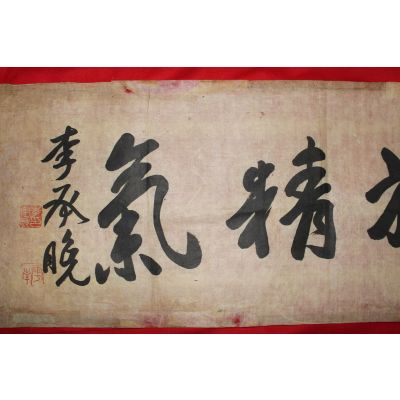 精氣
李承晩